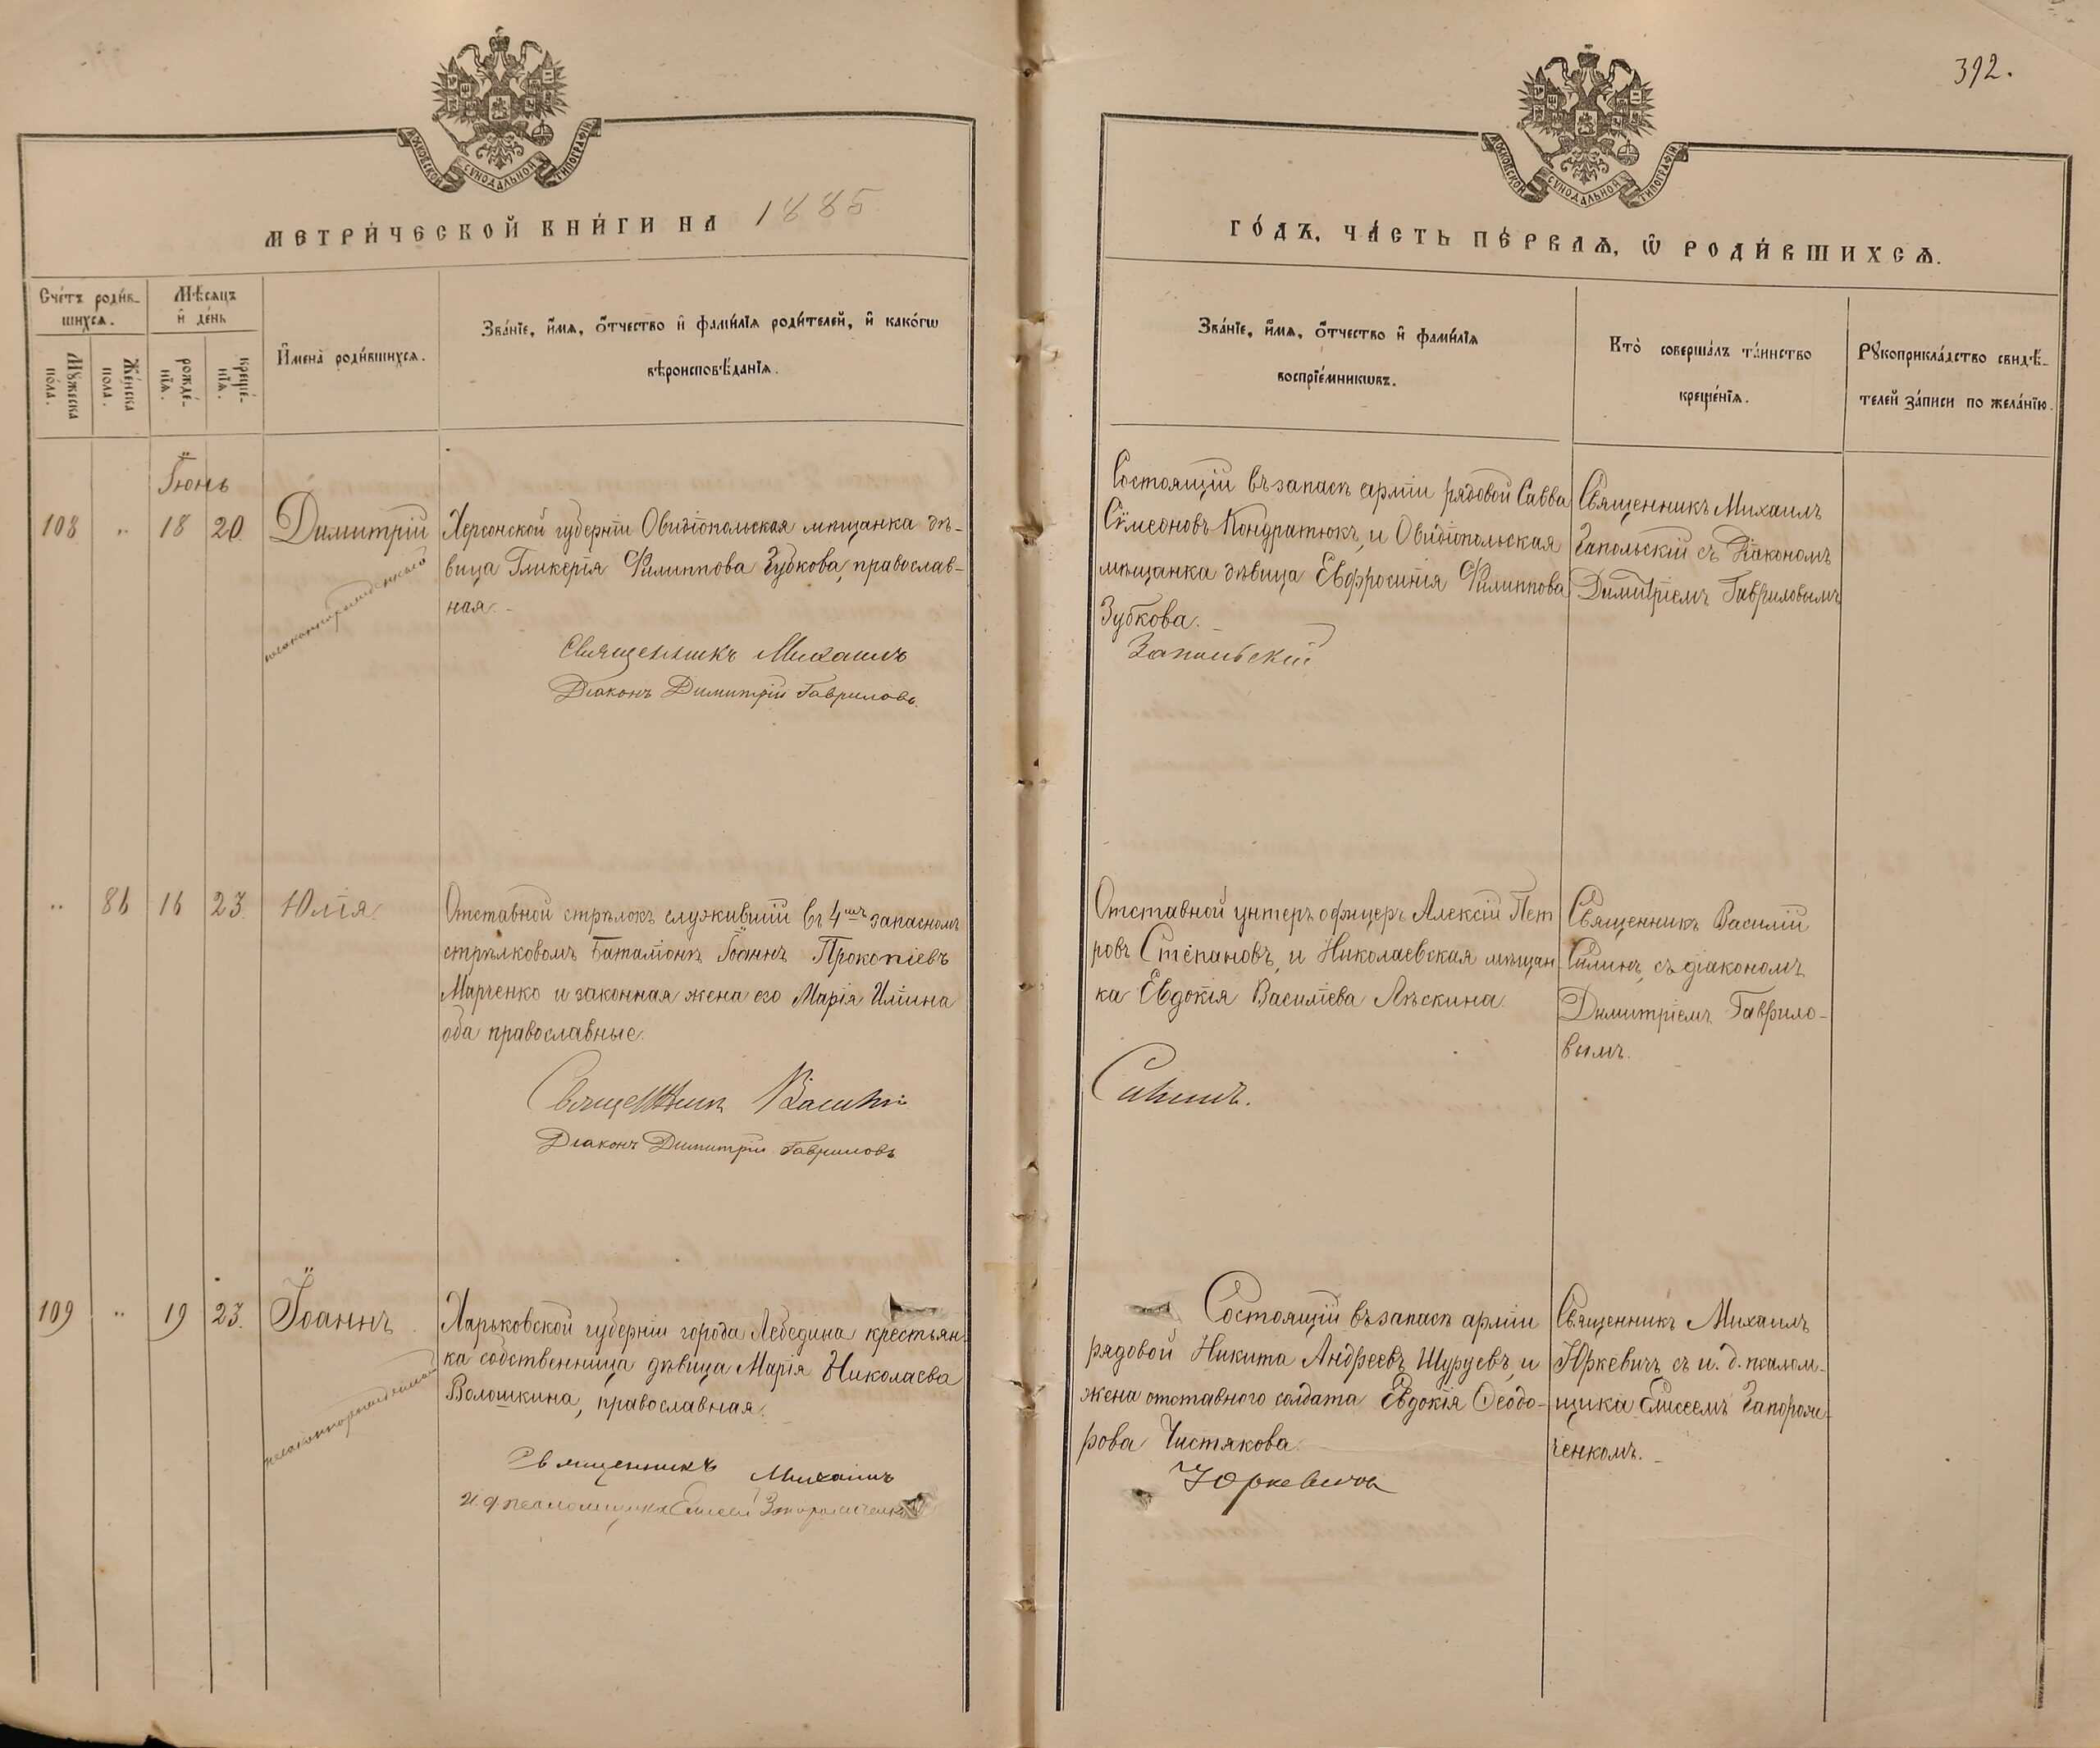 392.
МОСКОВСКОЙ СѴНОДАЛЬНОЙ ТИПОГРАФІИ
МОСКОВСКОЙ СѴНОДАЛЬНОЙ ТИПОГРАФІИ
МЕТРИ́ЧЕСКОЙ КНИ́ГИ НА 1885
ГО́ДЪ, ЧА́СТЬ ПЕ́РВАѦ, Ѿ РОДИ́ВШИХСѦ.
Сче́тъ роди́в-
шихся.
Мѣ́сяцъ
и҆ де́нь
Мꙋ́жеска
по́ла.
Же́нска
пола.
рожде́-
нїя.
креще́-
нїя.
И҆мена̀ роди́вшихся.
Зва́нїе, и҆́мя, о҆́тчество и҆ фами́лїя роди́телей, и҆ како́гѡ
вѣроисповѣ́данїя.
Зва́нїе, и҆́мя, о҆́тчество и҆ фами́лїя
воспрїе́мникѡвъ.
Кто̀ соверша́лъ та́инство
креще́нїя.
Рꙋкоприкла́дство свидѣ́-
телей за́писи по жела́нїю.
Іюнь
108 „ 18 20 Димитрій
незаконнорожденный
Херсонской губерніи Овидіопольская мѣщанка дѣ-
вица Гликерія Филиппова Зубкова, православ-
ная.
Священникъ Михаилъ
Діаконъ Димитрій Гавриловъ
Состоящій въ запасѣ арміи рядовой Савва
Сѵмеоновъ Кондратюкъ, и Овидіопольская
мѣщанка дѣвица Евфросинія Филиппова
Зубкова.
Запольскій
Священникъ Михаилъ
Запольскій съ Діакономъ
Димитріемъ Гавриловымъ
„ 86 16 23 Юлія
Отставной стрѣлокъ служившій въ 4мъ запасномъ
стрѣлковомъ баталіонѣ Іоаннъ Прокопіевъ
Марченко и законная жена его Марія Иліина
оба православные.
Священникъ Василій
Діаконъ Димитрій Гавриловъ
Отставной унтеръ офицеръ Алексій Пет
ровъ Степановъ, и Николаевская мѣщан-
ка Евдокія Василіева Лѣскина.
Силинъ.
Священникъ Василій
Силинъ, съ діакономъ
Димитріемъ Гаврило-
вымъ.
109 „ 19 23. Іоаннъ
незаконнорожденный
Харьковской губерніи города Лебедина крестьян-
ка собственница дѣвица Марія Николаева
Волошкина, православная.
Священникъ Михаилъ
И. д. псаломщика Елисей Запорожченко
Состоящій въ запасѣ арміи
рядовой Никита Андреевъ Шуруевъ, и
жена отставного солдата Евдокія Ѳеодо-
рова Чистякова.
Юркевичъ
Священникъ Михаилъ
Юркевичъ съ и. д. псалом-
щика Елисеемъ Запорож-
ченкомъ.